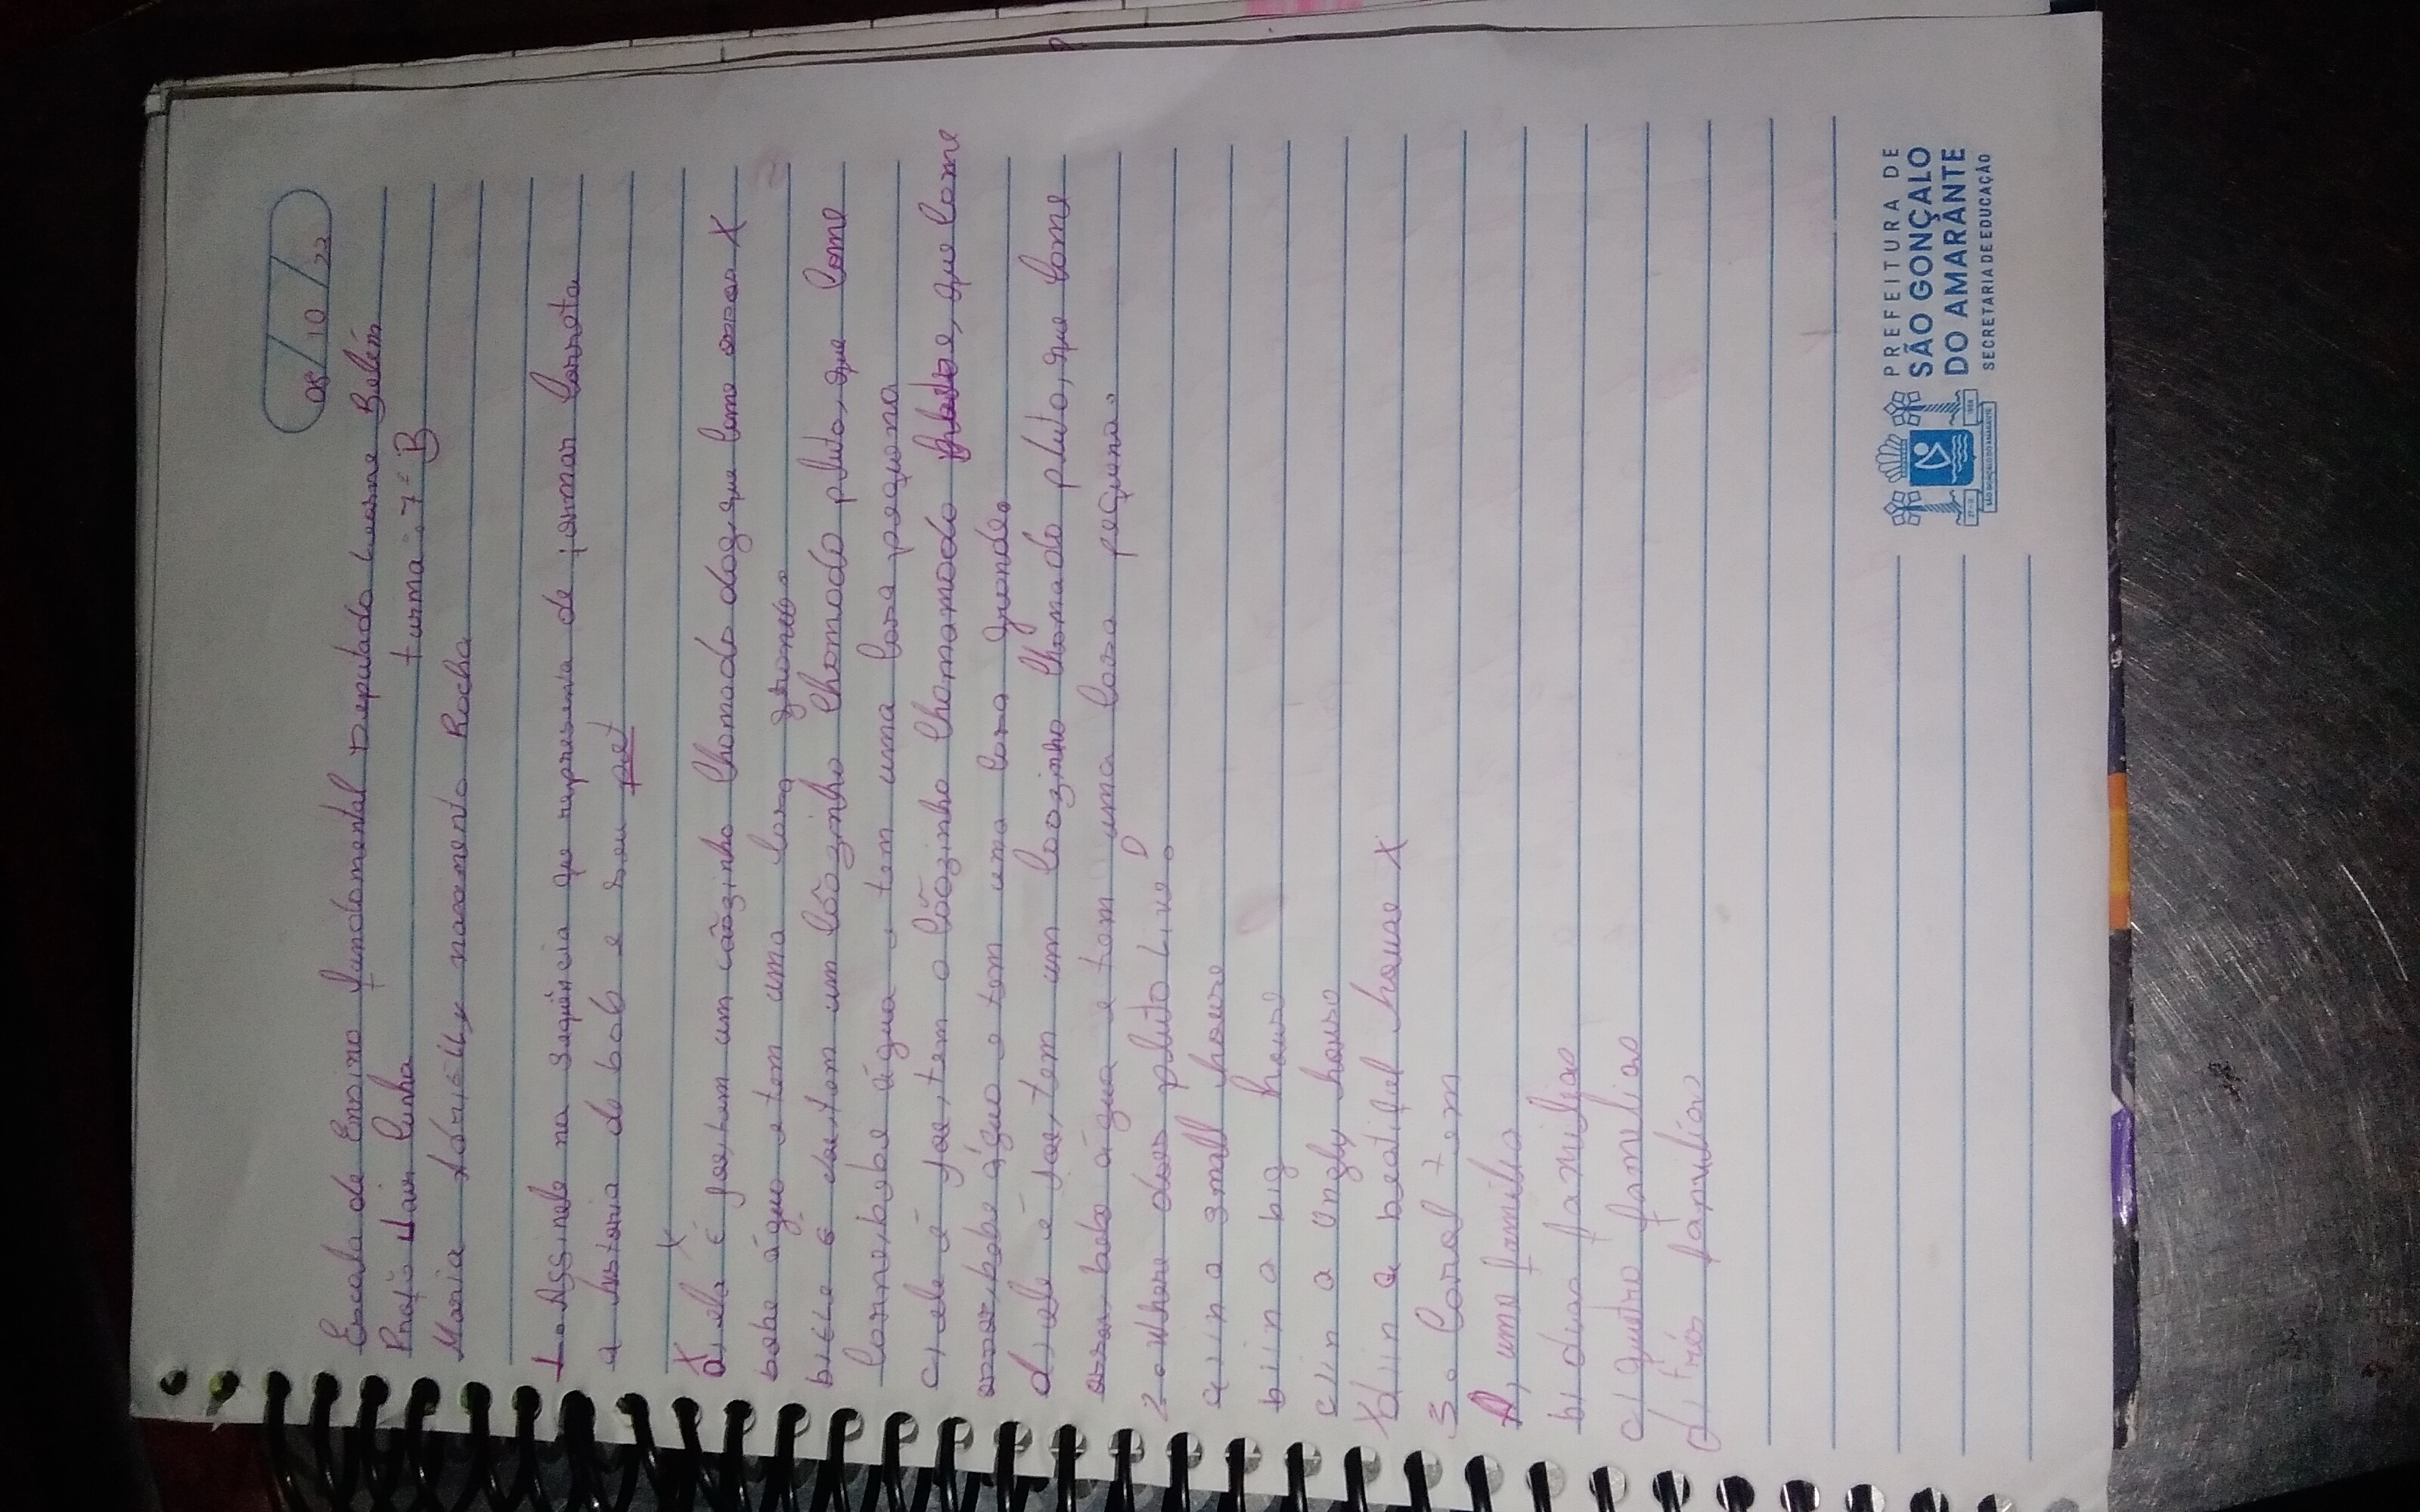 08/10/22
Escola de Ensino fundamental Deputado Leorne Belém
Profº Jair Cunha turma: 7º B
Maria Adrielly nascimento Rocha
1. Assinale na sequência que representa de formar Correta
a historia do bob e seu pet
X X
a) ele é Joe, tem um cãozinho Chamado dog, que Come ossos X
bebe água e tem uma casa grande.
b) Ele é Joe, tem um Cãozinho Chamado pluto, que Come
Carne, bebe água e tem uma casa pequena
c) ele é Joe, tem o Cãozinho Chamamado que Come
ossos, bebe água e tem uma casa grande.
d) ele é Joe, tem um Cãozinho Chamado pluto, que Come
ossos, bebe água e tem uma casa pequena.
2. Where does pluto Live?
a) in a small house
b) in a big house
c) in a Ungly house
X d) in a beatiful house X
3. Carol tem
A) uma família
b) duas familias
c) quatro familias
d) três familias
PREFEITURA DE
SÃO GONÇALO
DO AMARANTE
SECRETARIA DE EDUCAÇÃO
SÃO GONÇALO DO AMARANTE